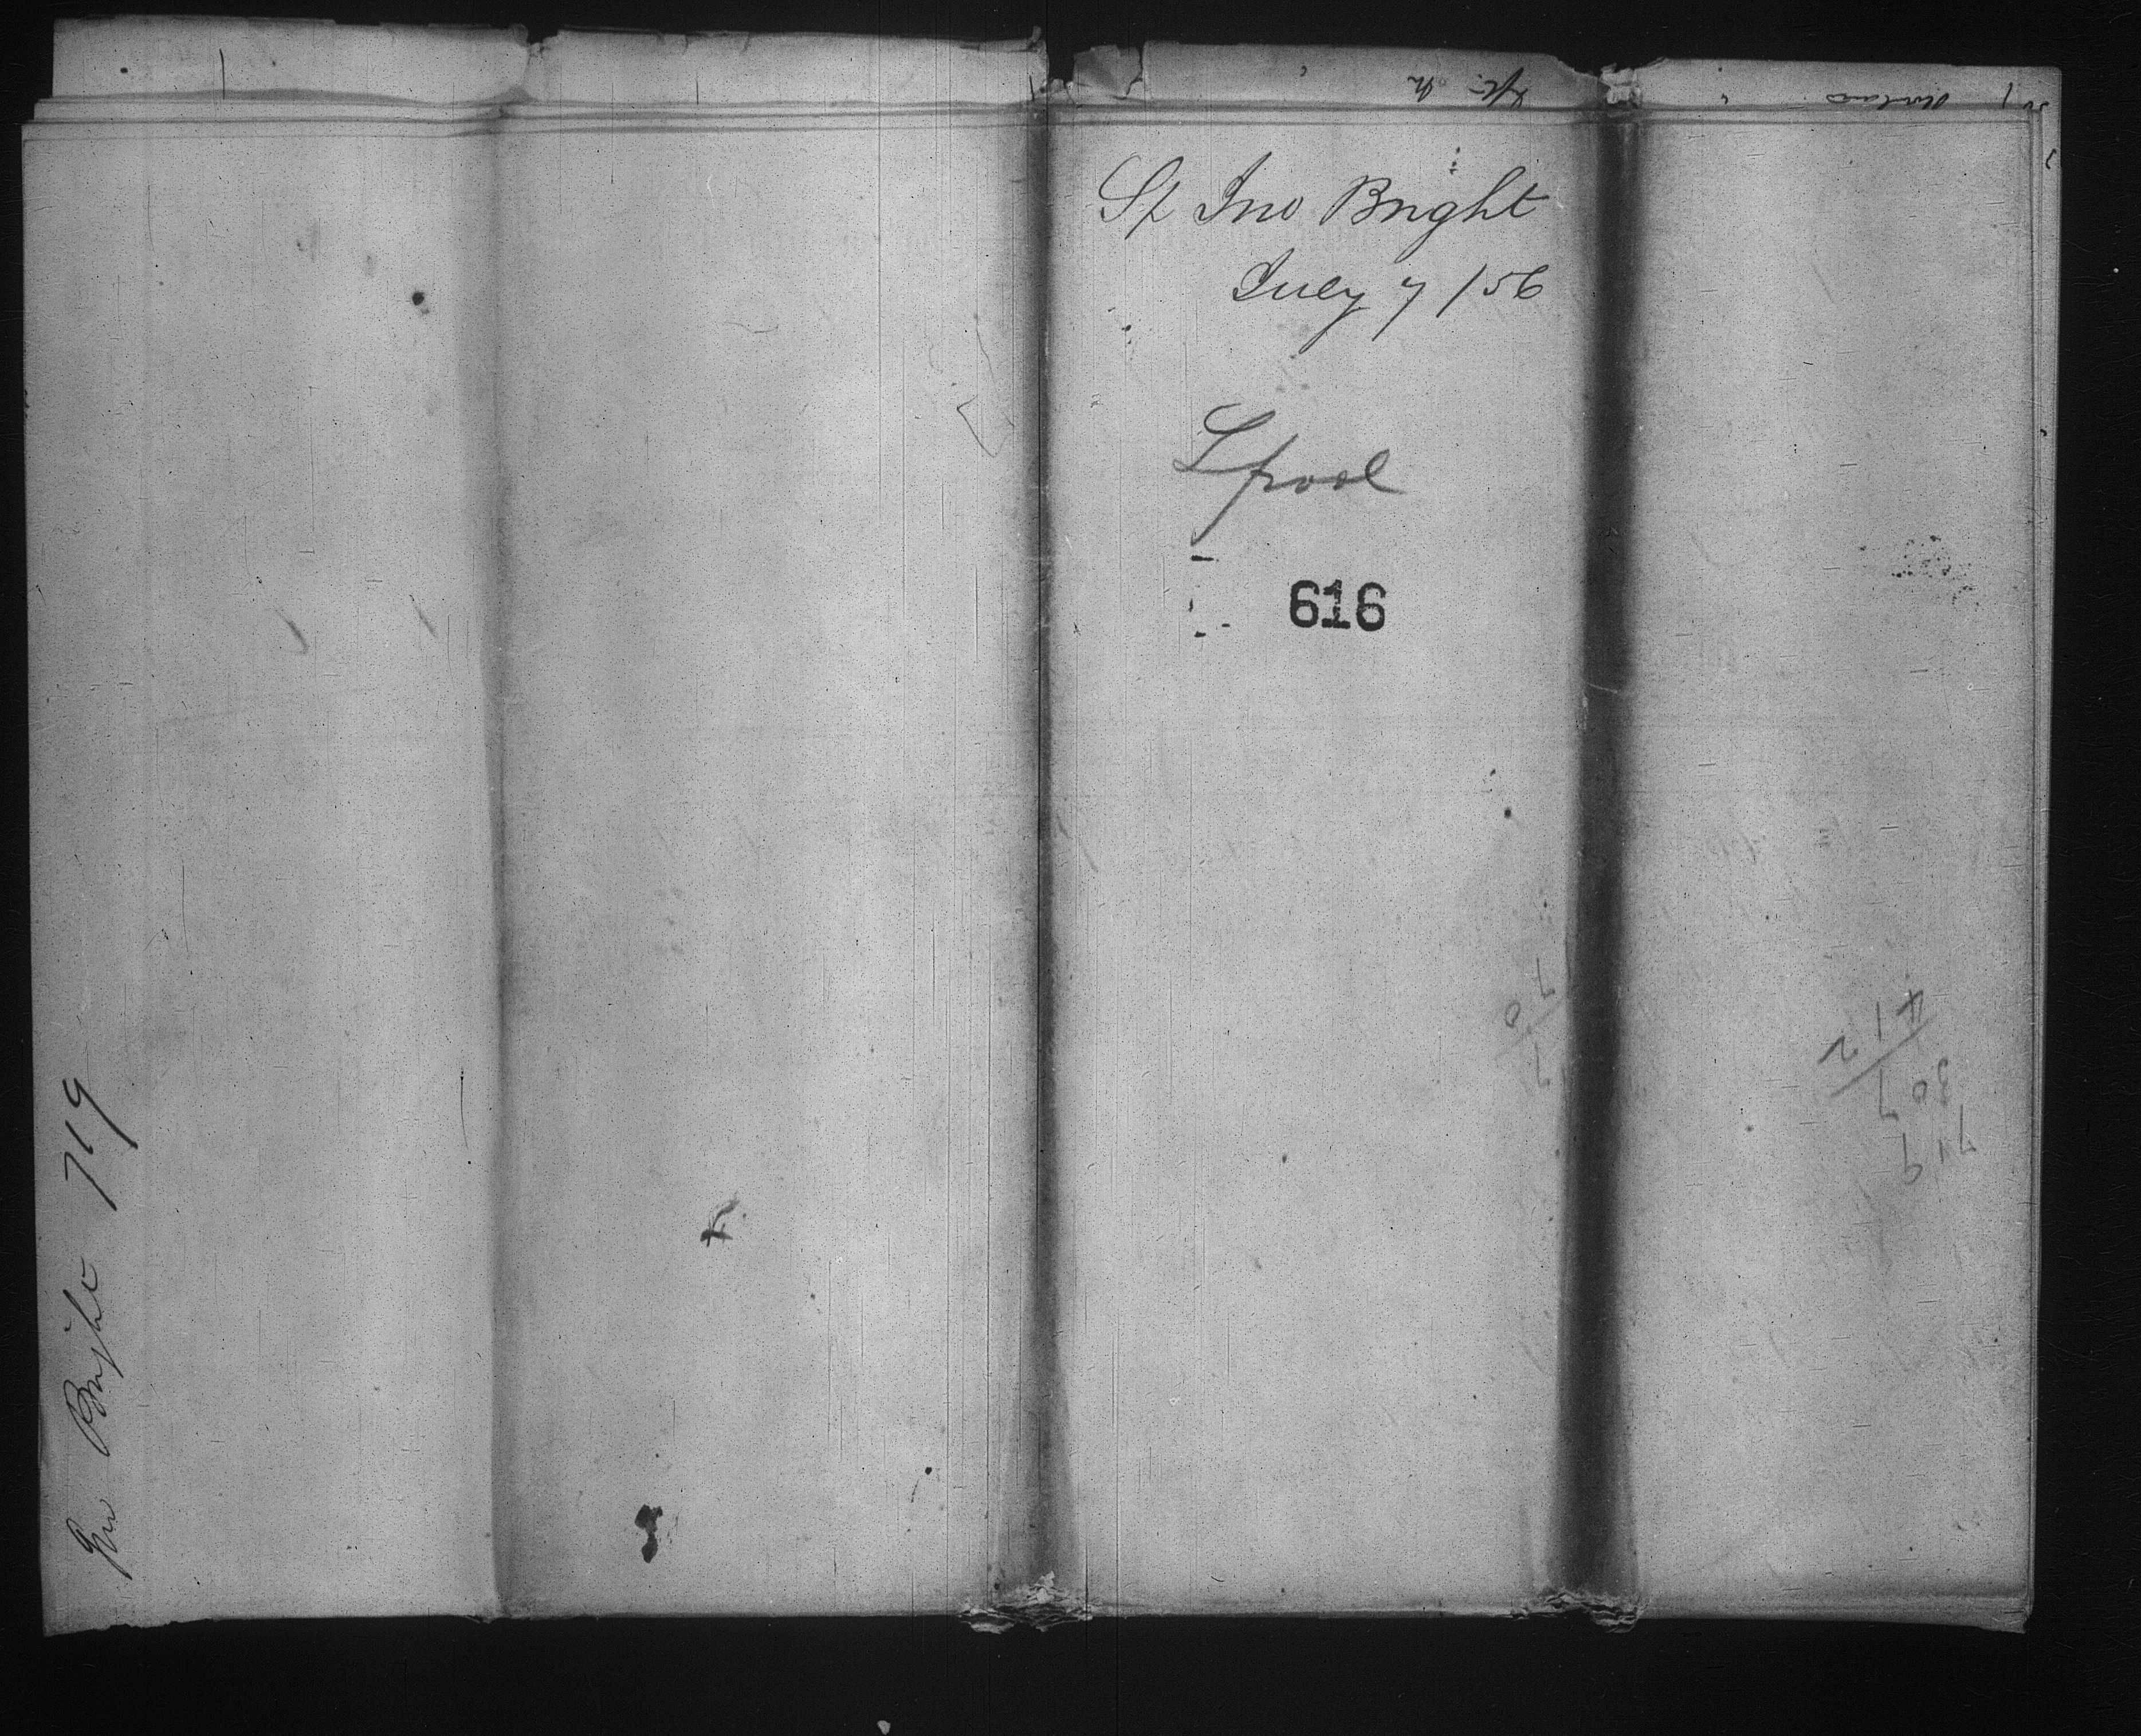 St Jno Bright
July 7/56
Lpool
616
Jno Bright 719
719
307
412